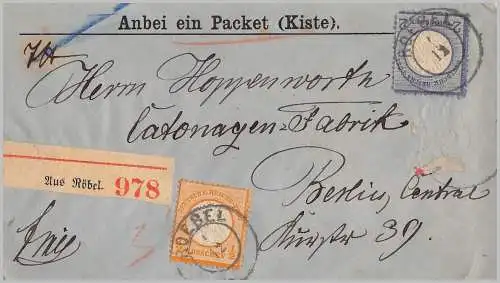 Anbei ein Packet (Kiste).
Herrn Hoppenworth
Catonagen-Fabrik
Berlin, Central
Kurstr 39.
Aus Röbel. 978
ROEBEL